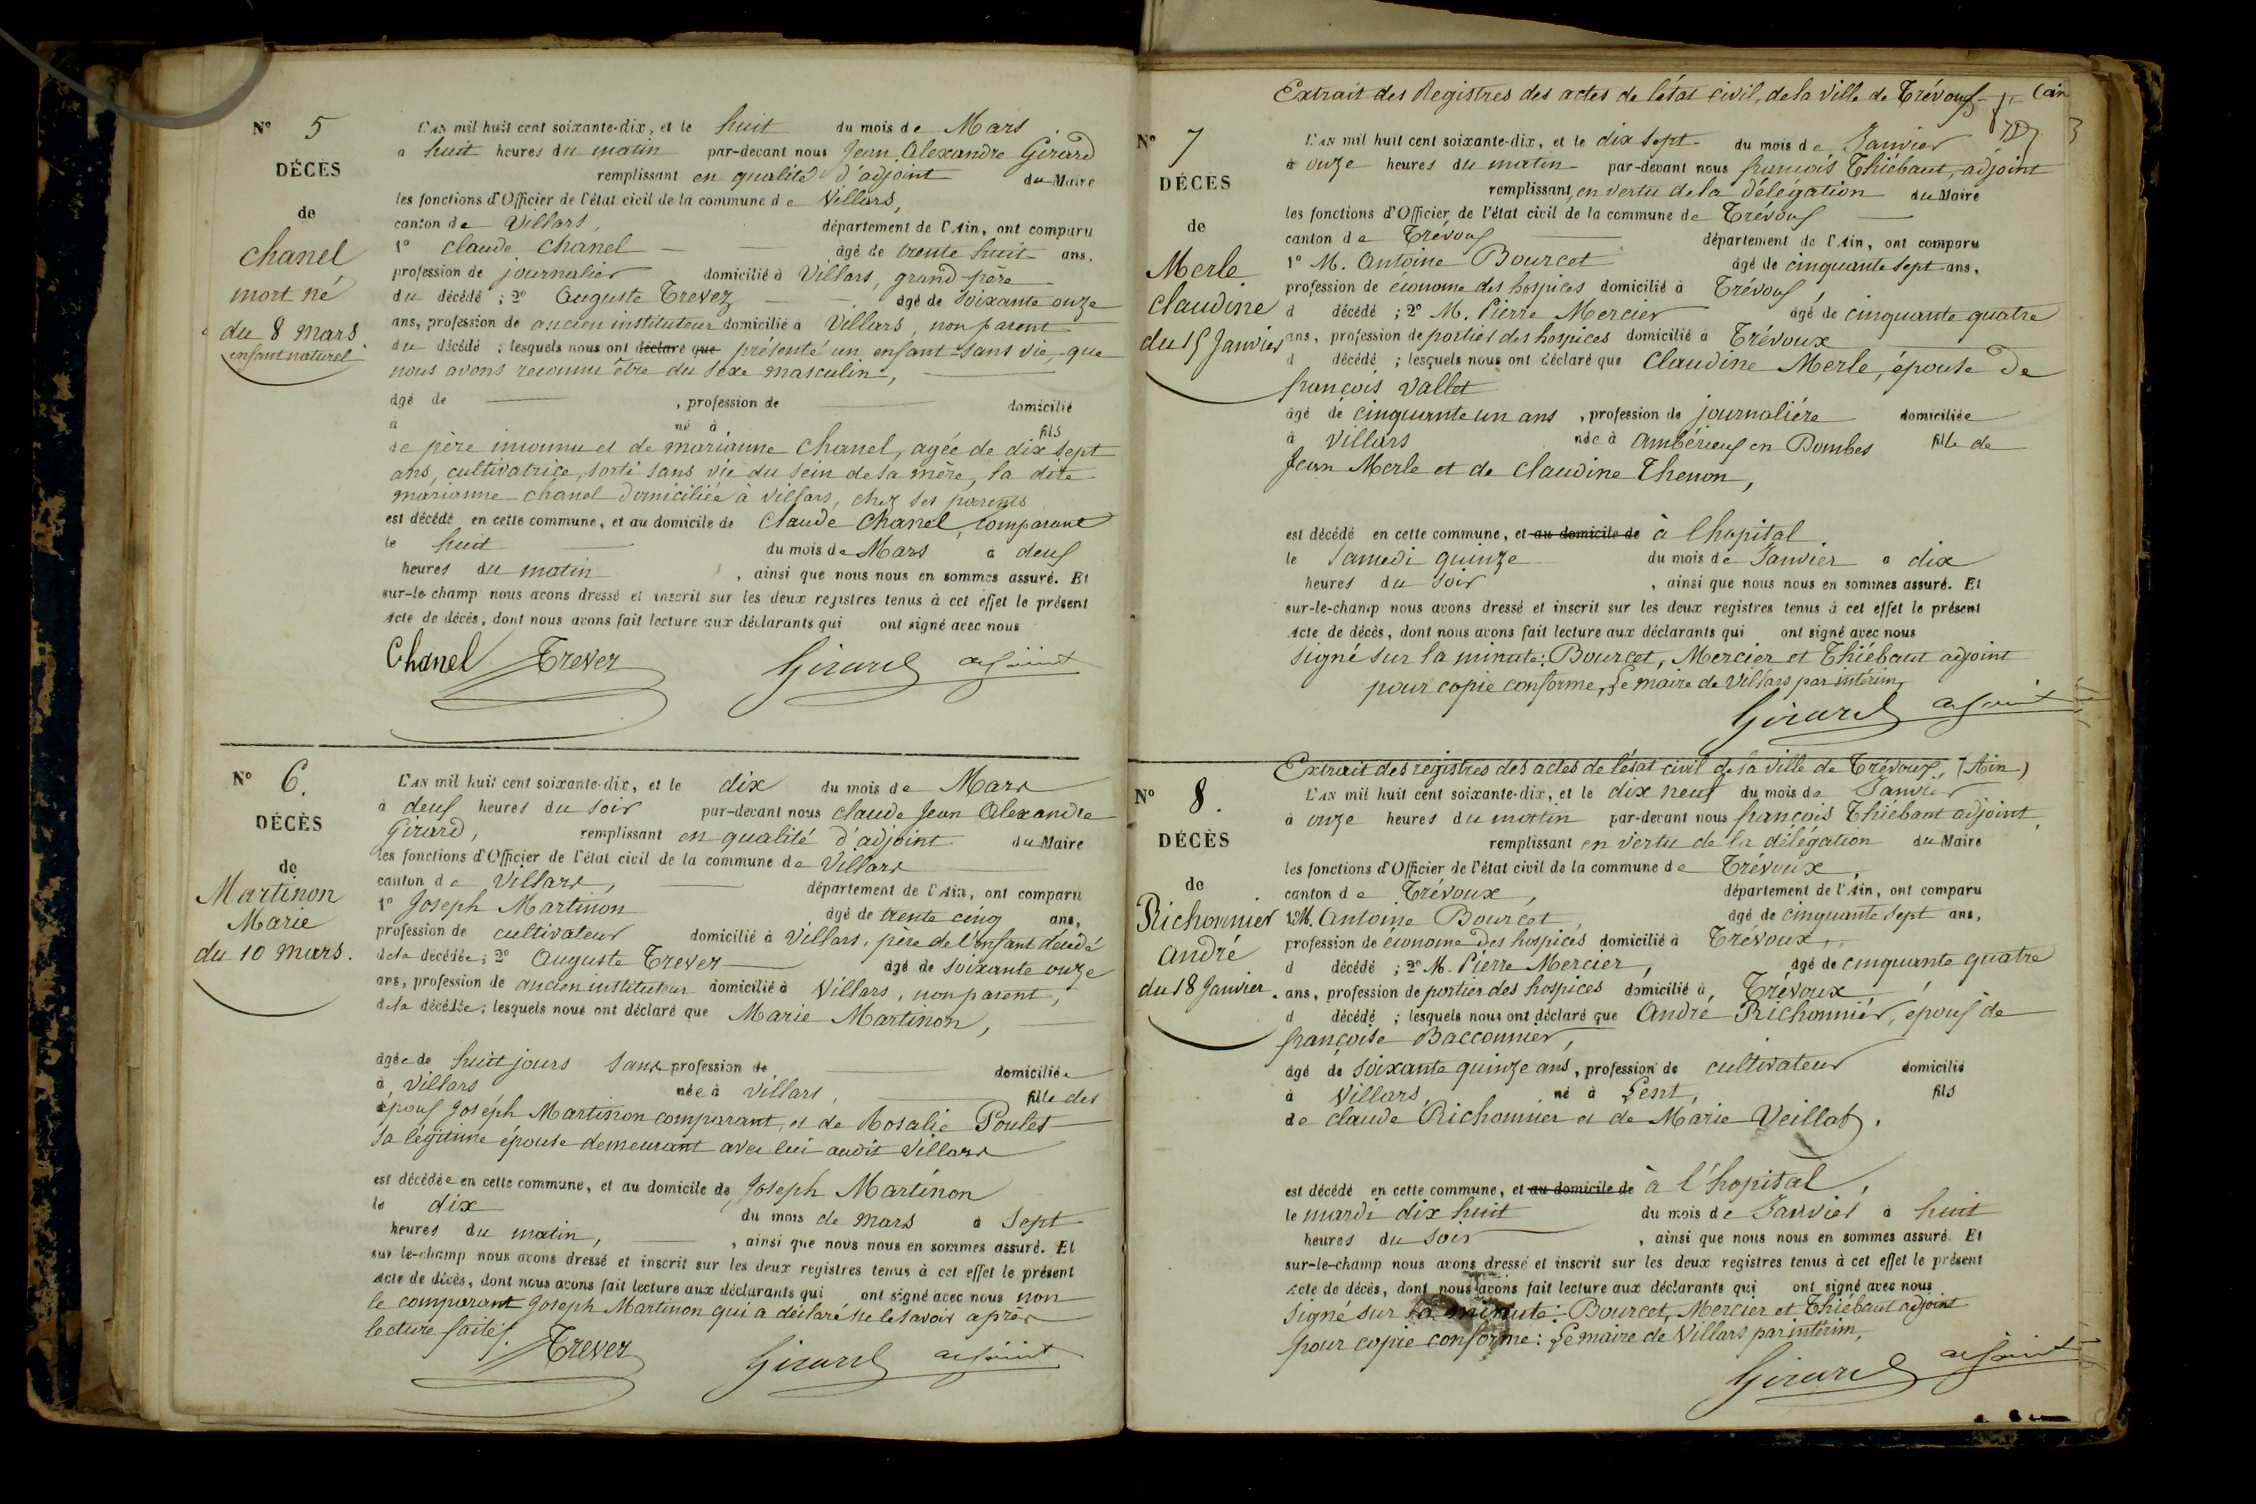 Nº 5
DÉCÈS
de
Chanel
mort né
du 8 mars
enfant naturel
L'AN mil huit cent soixante-dix, et le huit du mois de Mars
à huit heures du matin par-devant nous Jean Alexandre Girard
remplissant en qualité d'adjoint du Maire
les fonctions d'Officier de l'état civil de la commune de Villars,
canton de Villars, département de l'Ain, ont comparu
1º Claude Chanel âgé de trente huit ans,
profession de journalier domicilié à Villars, grand-père
du décédé ; 2º Auguste Trevez âgé de soixante onze
ans, profession de ancien instituteur domicilié à Villars, non parent
du décédé ; lesquels nous ont déclaré que présenté un enfant sans vie, que
nous avons reconnu être du sexe masculin,
âgé de , profession de domicilié
à né à fils
de père inconnu et de marianne Chanel, agée de dix sept
ans, cultivatrice, sorti sans vie du sein de sa mère, la dite
marianne Chanel domiciliée à Villars, chez ses parents
est décédé en cette commune, et au domicile de Claude Chanel, comparant
le huit du mois de Mars à deux
heures du matin , ainsi que nous nous en sommes assuré. Et
sur-le-champ nous avons dressé et inscrit sur les deux registres tenus à cet effet le présent
Acte de décès, dont nous avons fait lecture aux déclarants qui ont signé avec nous
Chanel Trevez Girard adjoint
Nº 6.
DÉCÈS
de
Martinon
Marie
du 10 mars.
L'AN mil huit cent soixante-dix, et le dix du mois de Mars
à deux heures du soir par-devant nous Claude Jean Alexandre
Girard, remplissant en qualité d'adjoint du Maire
les fonctions d'Officier de l'état civil de la commune de Villars
canton de Villars, département de l'Ain, ont comparu
1º Joseph Martinon âgé de trente cinq ans,
profession de cultivateur domicilié à Villars, père de l'enfant décédé
de la décédée ; 2º Auguste Trevez âgé de soixante onze
ans, profession de ancien instituteur domicilié à Villars, non parent,
de la décédée ; lesquels nous ont déclaré que Marie Martinon,
âgée de huit jours sans profession de domiciliée
à Villars née à Villars, fille des
époux Joseph Martinon comparant, et de Rosalie Poulet
sa légitime épouse demeurant avec lui audit Villars
est décédée en cette commune, et au domicile de Joseph Martinon
le dix du mois de mars à sept
heures du matin, , ainsi que nous nous en sommes assuré. Et
sur le-champ nous avons dressé et inscrit sur les deux registres tenus à cet effet le présent
Acte de décès, dont nous avons fait lecture aux déclarants qui ont signé avec nous non
le comparant Joseph Martinon qui a déclaré ne le savoir après
lecture faite.
Trevez Girard adjoint
Extrait des Registres des actes de l'état civil, de la ville de Trévoux (ain
Nº 7
DÉCÈS
de
Merle
Claudine
du 15 Janvier
L'AN mil huit cent soixante-dix, et le dix sept du mois de Janvier
à onze heures du matin par-devant nous françois Thiébaut, adjoint
remplissant, en vertu de la délégation du Maire
les fonctions d'Officier de l'état civil de la commune de Trévoux
canton de Trévoux département de l'Ain, ont comparu
1º M. Antoine Bourcet âgé de cinquante sept ans,
profession de économe des hospices domicilié à Trévoux,
d décédé ; 2º M. Pierre Mercier âgé de cinquante quatre
ans, profession de portier des hospices domicilié à Trévoux
d décédé ; lesquels nous ont déclaré que Claudine Merle, épouse de
françois Vallet
âgé de cinquante un ans , profession de journalière domiciliée
à Villars née à Ambérieux en Dombes fille de
Jean Merle et de Claudine Thenon,
est décédé en cette commune, et au domicile de à l'hopital
le Samedi quinze du mois de Janvier à dix
heures du soir , ainsi que nous nous en sommes assuré. Et
sur-le-champ nous avons dressé et inscrit sur les deux registres tenus à cet effet le présent
Acte de décès, dont nous avons fait lecture aux déclarants qui ont signé avec nous
Signé sur la minute: Bourcet, Mercier et Thiébaut adjoint
pour copie conforme, Le maire de Villars par intérim,
Girard adjoint
Extrait des registres des actes de l'état civil de la ville de Trévoux, (Ain)
Nº 8.
DÉCÈS
de
Richonnier
André
du 18 Janvier.
L'AN mil huit cent soixante-dix, et le dix neuf du mois de Janvier
à onze heures du matin par-devant nous françois Thiébaut adjoint
remplissant en vertu de la délégation du Maire
les fonctions d'Officier de l'état civil de la commune de Trévoux,
canton de Trévoux, département de l'Ain, ont comparu
1º M. Antoine Bourcet, âgé de cinquante sept ans,
profession de économe des hospices domicilié à Trévoux,
d décédé ; 2º M. Pierre Mercier, âgé de cinquante quatre
ans, profession de portier des hospices domicilié à Trévoux
d décédé ; lesquels nous ont déclaré que André Richonnier, époux de
françoise Bacconnier,
âgé de soixante quinze ans , profession de cultivateur domicilié
à Villars né à Lent, fils
de Claude Richonnier et de Marie Veillat.
est décédé en cette commune, et au domicile de à l'hopital,
le mardi dix huit du mois de Janvier à huit
heures du soir , ainsi que nous nous en sommes assuré. Et
sur-le-champ nous avons dressé et inscrit sur les deux registres tenus à cet effet le présent
Acte de décès, dont nous avons fait lecture aux déclarants qui ont signé avec nous
Signé sur la minute: Bourcet, Mercier et Thiébaut adjoint
pour copie conforme: Le maire de Villars par intérim,
Girard adjoint